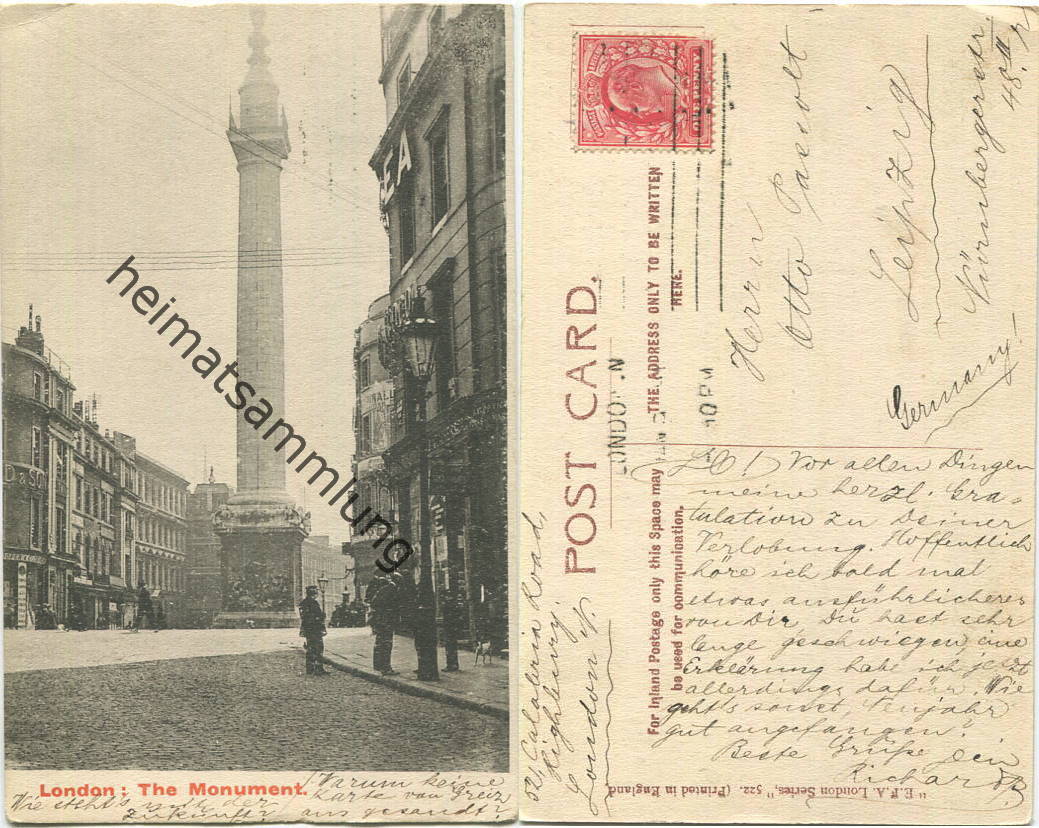 EA
D & SON
London: The Monument.
Wie steht's mit der
Zukünft?
Warum keine
Karte von Greiz
aus gesandt?
heimatsammlung
ONE PENNY
POST CARD.
THE ADDRESS ONLY TO BE WRITTEN
HERE.
For Inland Postage only this Space may
be used for communication.
LONDON N
10 PM
Herrn
Otto
Leipzig
Nürnbergerstr.
48
Germany
52, Calabria Road,
Highbury.
London N.
L. O! Vor allen Dingen
meine herzl. Gra-
tulation zu Deiner
Verlobung. Hoffentlich
höre ich bald mal
etwas ausführlicheres
von Dir. Du hast sehr
lange geschwiegen, eine
Erklärung habe ich jetzt
allerdings dafür. Wie
geht's sonst, Neujahr
gut angefangen?
Beste Grüße Dein
Richard
"E.F.A. London Series," 522. (Printed in England.